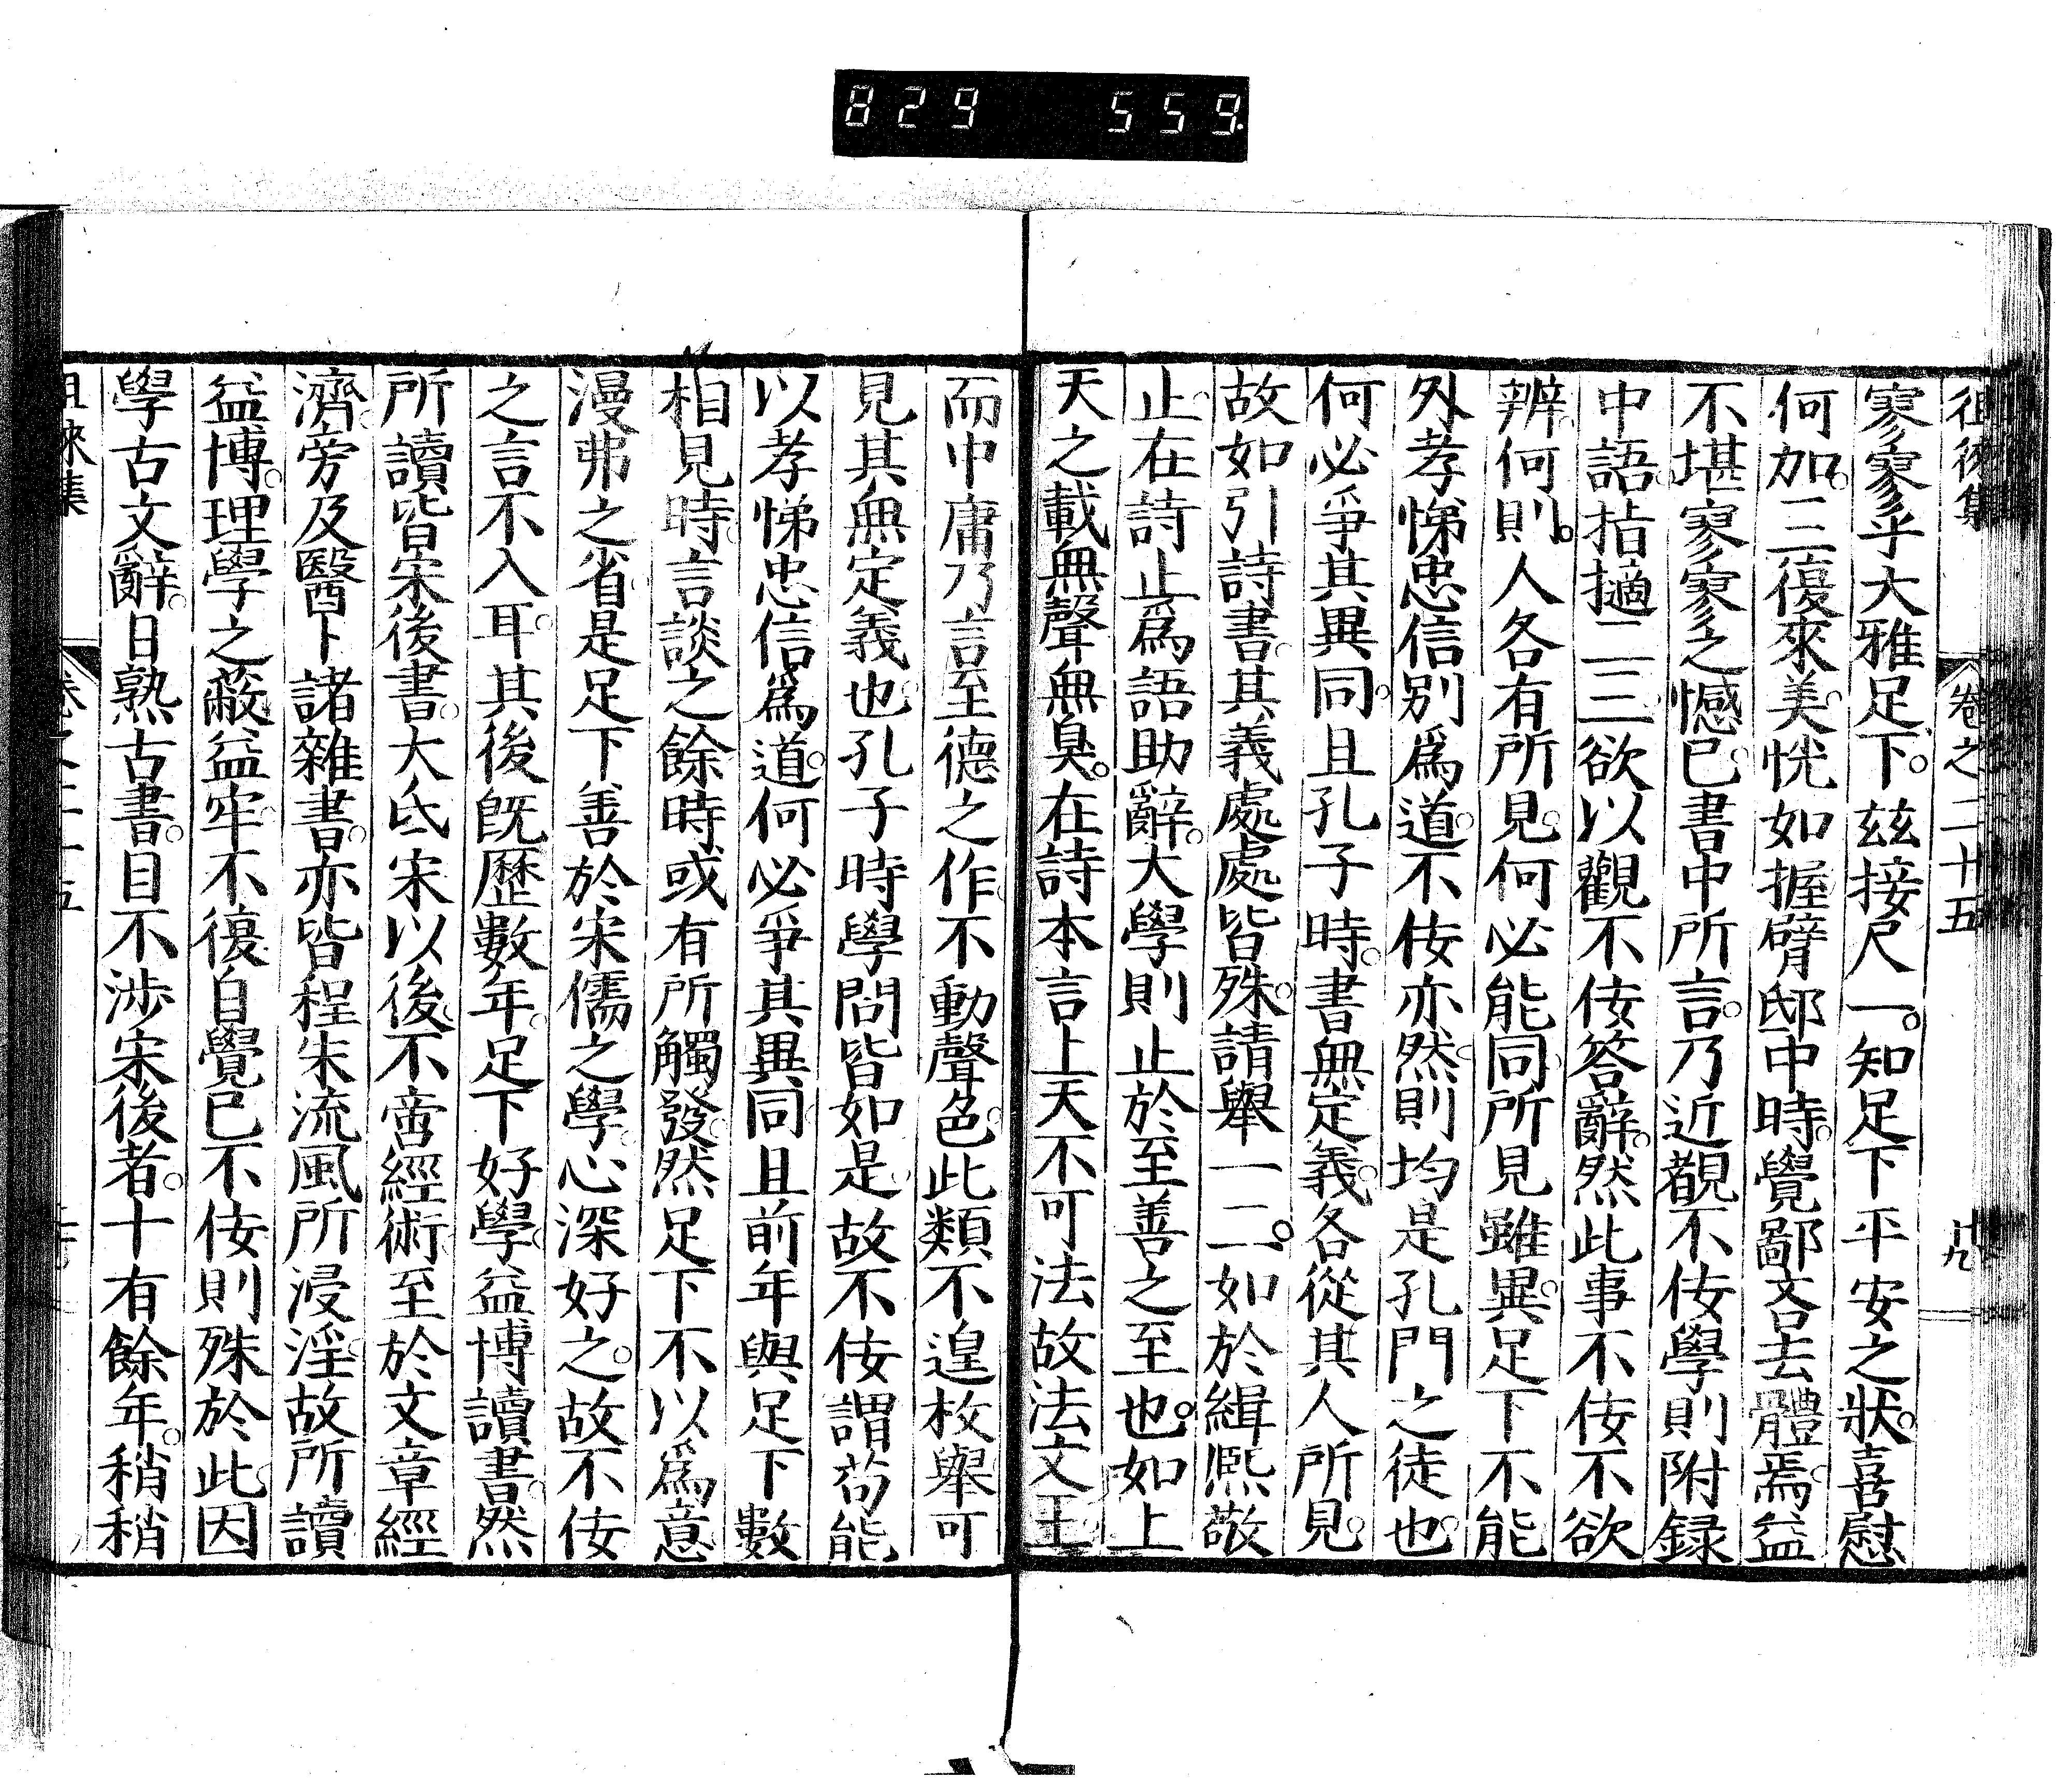 829 559.
徂徠集 卷之二十五 十九
寥寥乎大雅足下。玆接尺一。知足下平安之狀。喜慰
何加。三復來美。恍如握臂邸中時。覺鄙吝去體焉。益
不堪寥寥之憾已。書中所言。乃近覩不佞學則附録
中語。拈擿一二三。欲以觀不佞答辭。然此事不佞不欲
辨。何則。人各有所見。何必能同。所見雖異。足下不能
外孝悌忠信別爲道。不佞亦然。則均是孔門之徒也。
何必爭其異同。且孔子時。書無定義。各從其人所見。
故如引詩書。其義處處皆殊。請舉一二。如於緝熈敬
止。在詩止爲語助辭。大學則止於至善之至也。如上
天之載無聲無臭。在詩本言上天不可法故法文王
而中庸乃言至德之作。不動聲色。此類不遑枚舉。可
見其無定義也。孔子時學問皆如是。故不佞謂苟能
以孝悌忠信爲道。何必爭其異同。且前年與足下數
相見時。言談之餘。時或有所觸發。然足下不以爲意。
漫弗之省。是足下善於宋儒之學。心深好之。故不佞
之言不入耳。其後旣歷數年。足下好學。益博讀書。然
所讀皆宋後書。大氐宋以後。不啻經術。至於文章經
濟。旁及醫卜諸雜書。亦皆程朱流風所浸淫。故所讀
益博。理學之蔽益牢。不復自覺已。不佞則殊於此。因
學古文辭。日熟古書。目不涉宋後者。十有餘年。稍稍